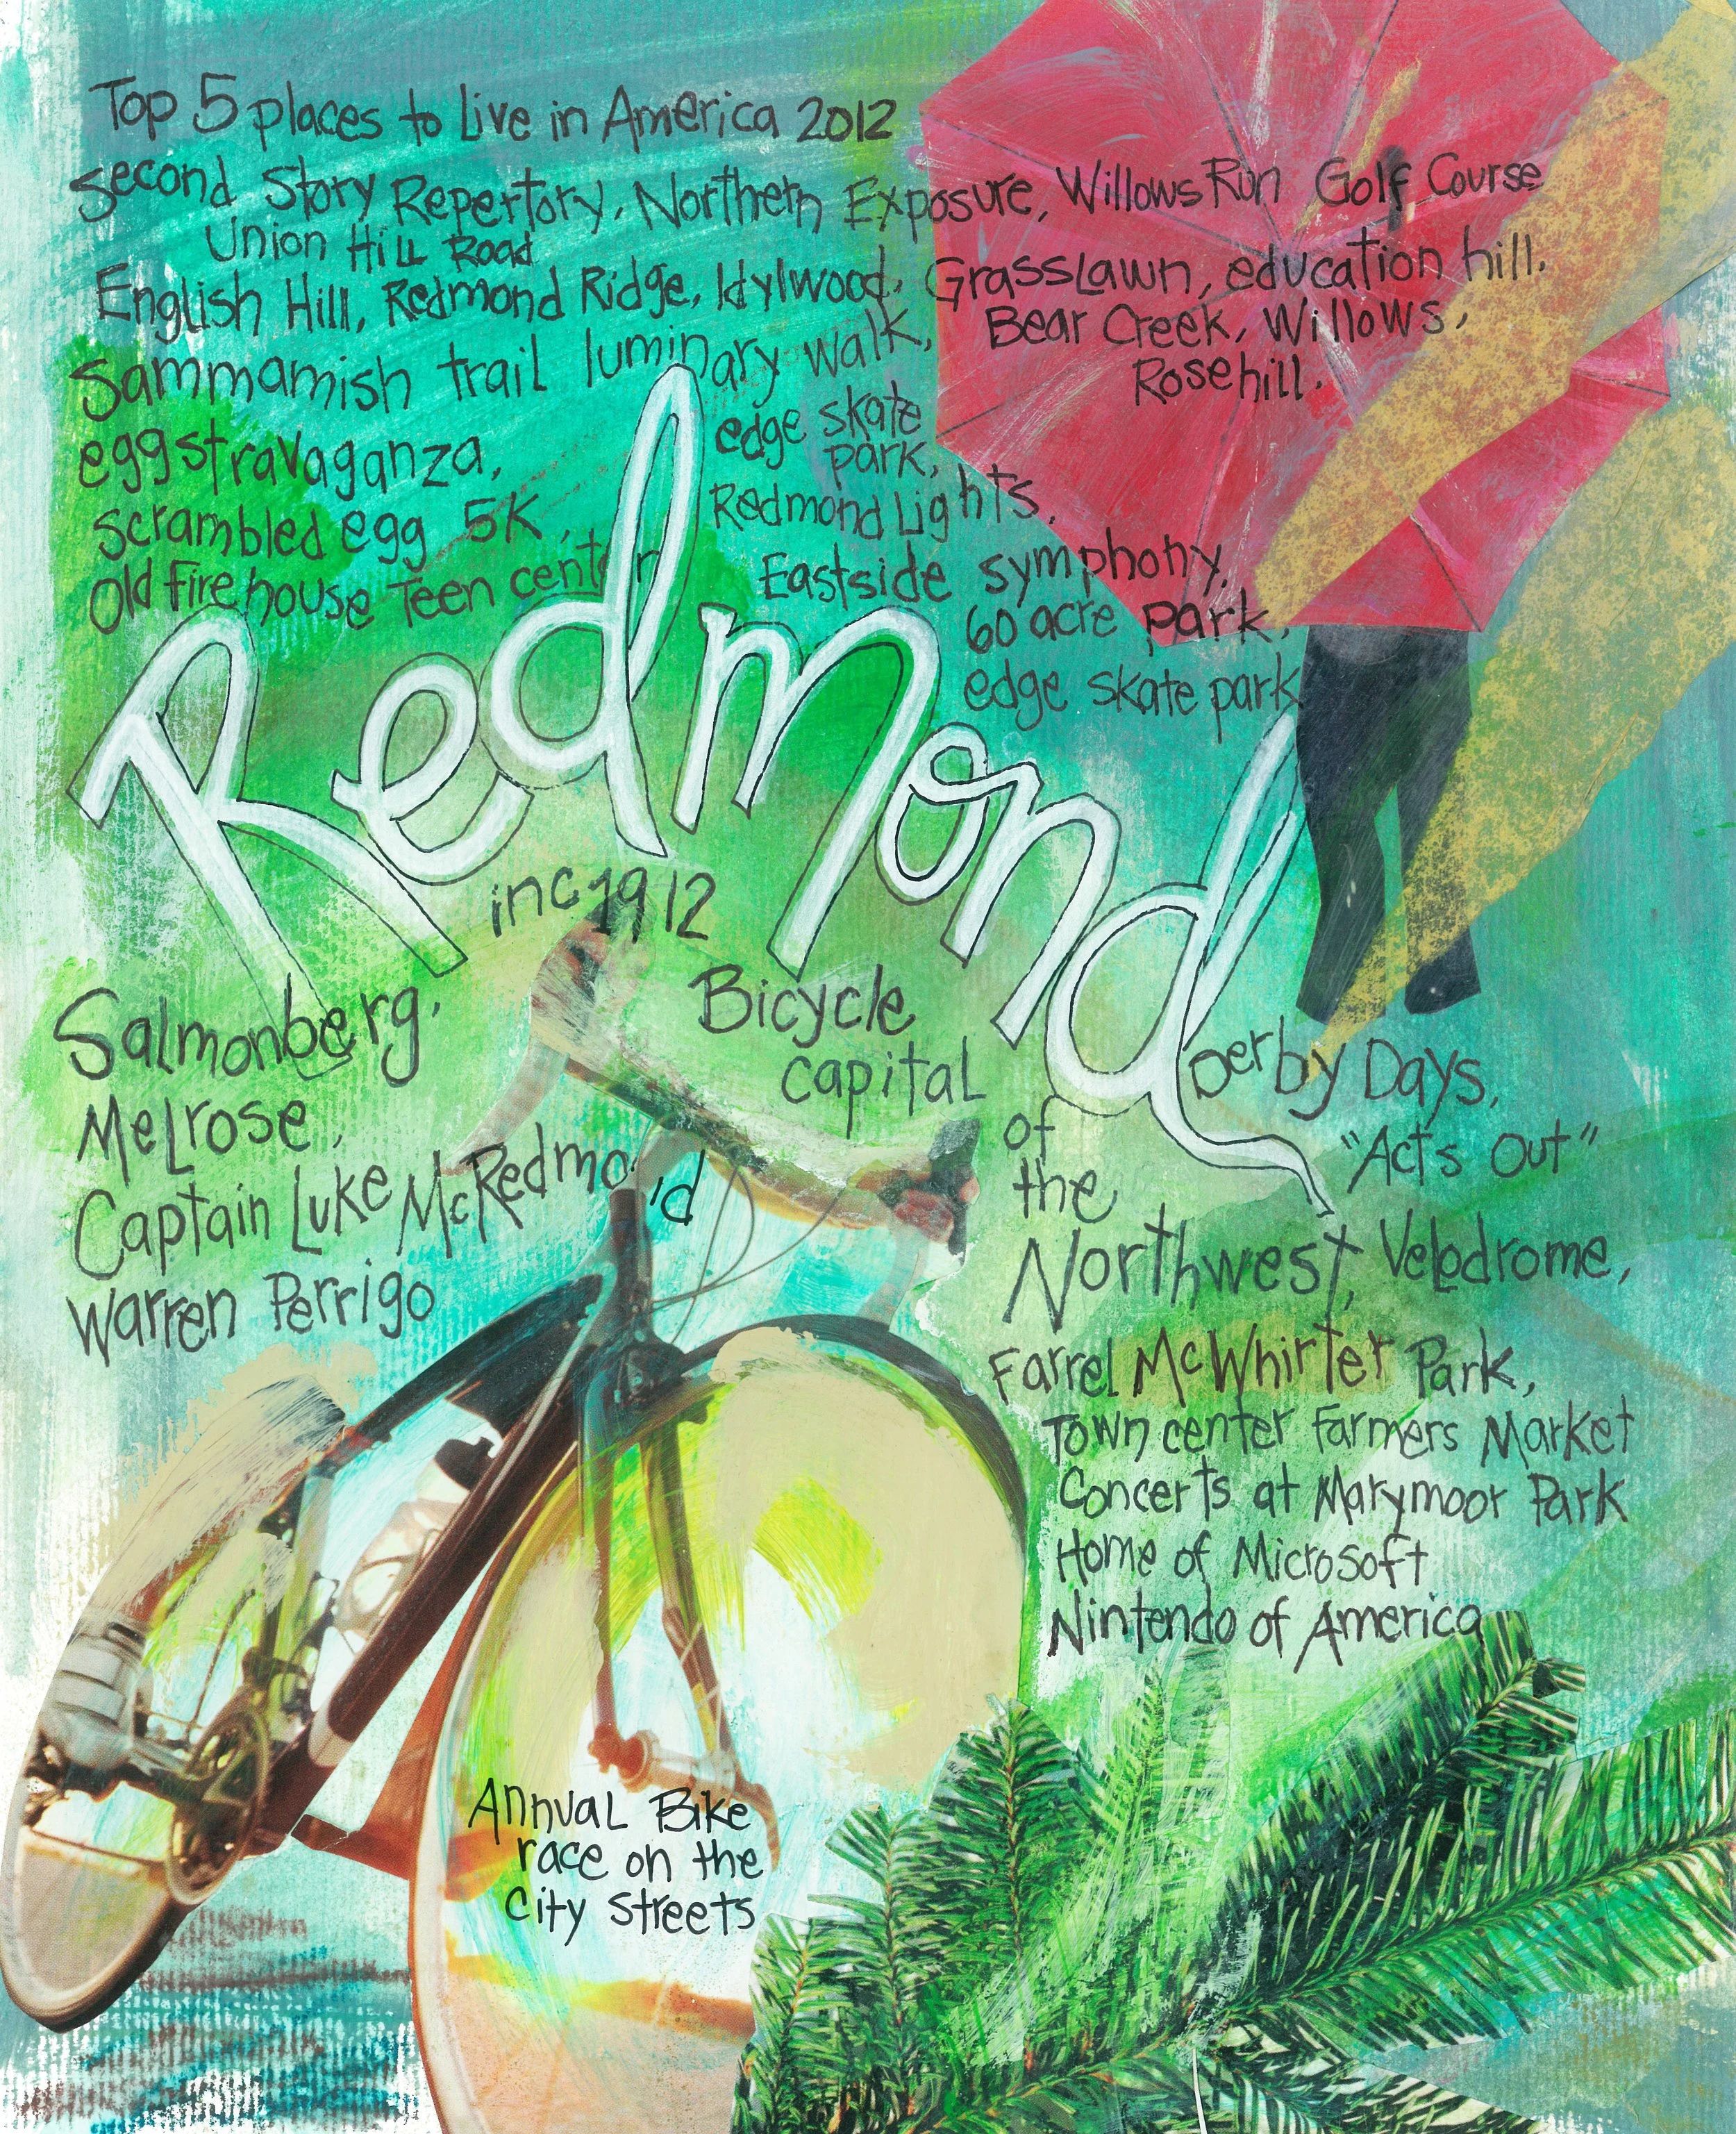 Top 5 places to Live in America 2012
Second Story Repertory, Northern Exposure, Willows Run Golf Course
Union Hill Road
English Hill, Redmond Ridge, Idylwood, GrassLawn, education hill,
Bear Creek, Willows,
Rosehill.
Sammamish trail luminary walk,
edge skate
park,
eggstravaganza,
Redmond Lights,
scrambled egg 5K,
Eastside symphony,
Old Firehouse Teen center
60 acre park,
edge skate park
Redmond
inc 1912
Bicycle
capital
of
the
Northwest,
Salmonberg,
MeLrose,
Captain Luke McRedmond
Warren Perrigo
Derby Days,
"Acts Out"
Velodrome,
Farrel McWhirter Park,
Town center Farmers Market
Concerts at Marymoor Park
Home of Microsoft
Nintendo of America
AnnuaL Bike
race on the
City Streets